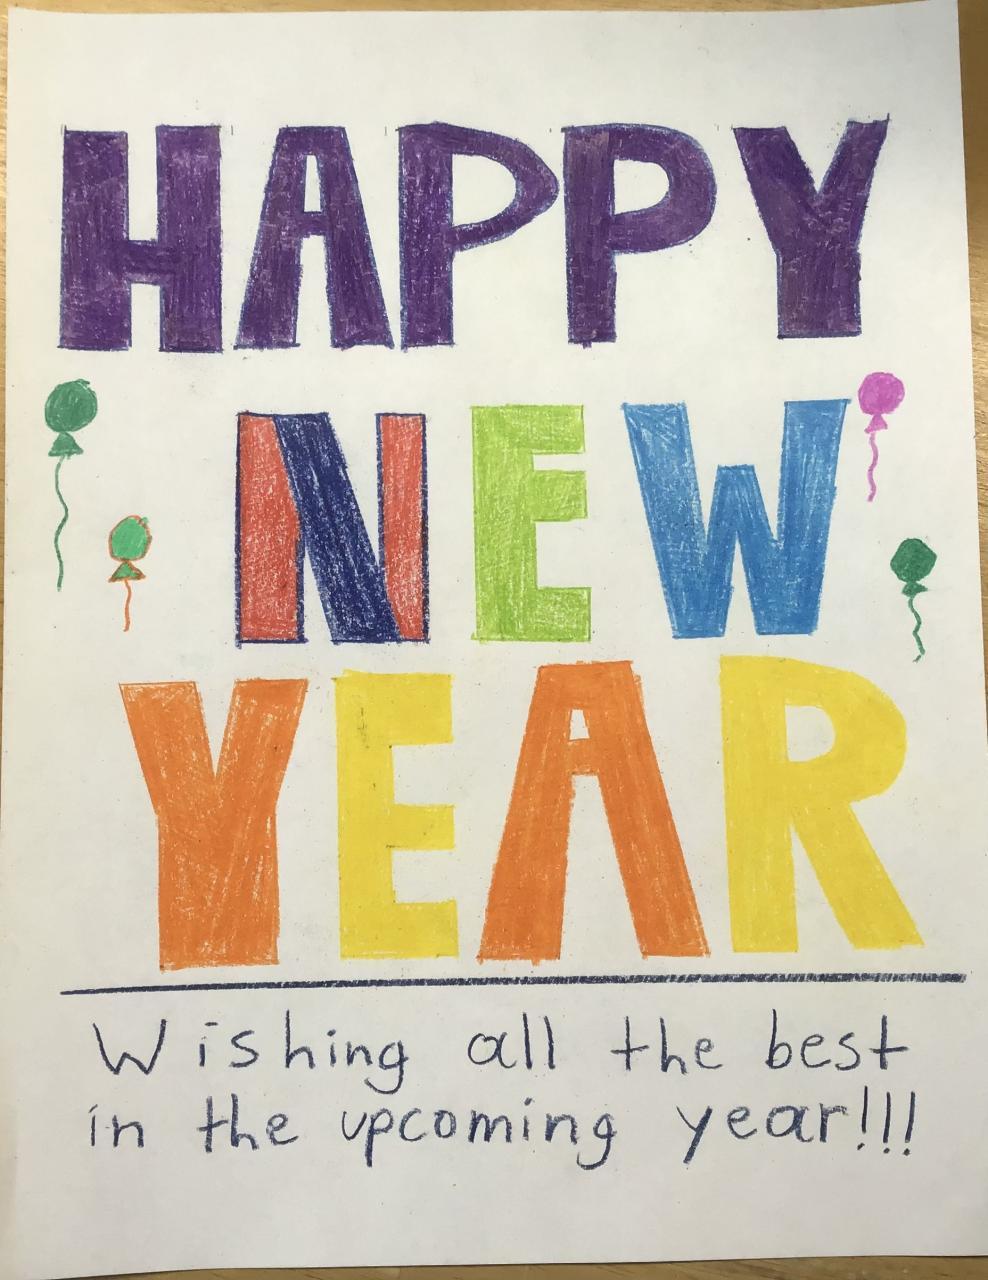 HAPPY
NEW
YEAR
Wishing all the best
in the upcoming year!!!